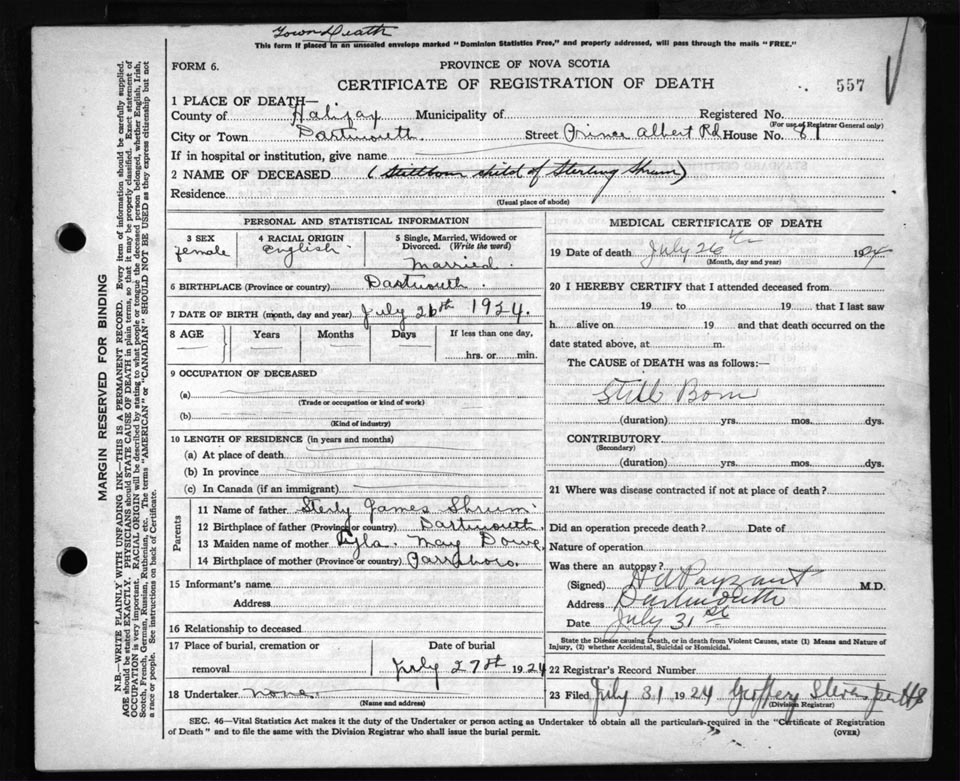 Town Death
This form if placed in an unsealed envelope marked "Dominion Statistics Free," and properly addressed, will pass through the mails "FREE."
FORM 6.
PROVINCE OF NOVA SCOTIA
CERTIFICATE OF REGISTRATION OF DEATH
557
1 PLACE OF DEATH—
County of Halifax Municipality of Registered No.
(For use of Registrar General only)
City or Town Dartmouth Street Prince Albert Rd House No. 81
If in hospital or institution, give name
2 NAME OF DECEASED (Stillborn child of Sterling Shrum)
Residence
(Usual place of abode)
PERSONAL AND STATISTICAL INFORMATION
3 SEX female
4 RACIAL ORIGIN English
5 Single, Married, Widowed or Divorced. (Write the word) Married
6 BIRTHPLACE (Province or country) Dartmouth
7 DATE OF BIRTH (month, day and year) July 26th 1924.
8 AGE Years Months Days If less than one day,
hrs. or min.
9 OCCUPATION OF DECEASED
(a)
(Trade or occupation or kind of work)
(b)
(Kind of industry)
10 LENGTH OF RESIDENCE (in years and months)
(a) At place of death
(b) In province
(c) In Canada (if an immigrant)
Parents
11 Name of father Sterly James Shrum
12 Birthplace of father (Province or country) Dartmouth.
13 Maiden name of mother Lyla May Dowe
14 Birthplace of mother (Province or country) Parrsboro.
15 Informant's name
Address
16 Relationship to deceased
17 Place of burial, cremation or removal
Date of burial
July 27th 1924
18 Undertaker none
(Name and address)
MEDICAL CERTIFICATE OF DEATH
19 Date of death July 26th 1924
(Month, day and year)
20 I HEREBY CERTIFY that I attended deceased from
19 to 19 that I last saw
h alive on 19 and that death occurred on the
date stated above, at m.
The CAUSE of DEATH was as follows:—
Still Born
(duration) yrs. mos. dys.
CONTRIBUTORY
(Secondary)
(duration) yrs. mos. dys.
21 Where was disease contracted if not at place of death?
Did an operation precede death? Date of
Nature of operation
Was there an autopsy?
(Signed) H A Payzant M.D.
Address Dartmouth
Date July 31st
State the Disease causing Death, or in death from Violent Causes, state (1) Means and Nature of
Injury, (2) whether Accidental, Suicidal or Homicidal.
22 Registrar's Record Number
23 Filed July 31 1924 Geoffrey Stevens per HS
(Division Registrar)
SEC. 46—Vital Statistics Act makes it the duty of the Undertaker or person acting as Undertaker to obtain all the particulars required in the "Certificate of Registration
of Death" and to file the same with the Division Registrar who shall issue the burial permit.
(OVER)
MARGIN RESERVED FOR BINDING
N.B.—WRITE PLAINLY WITH UNFADING INK—THIS IS A PERMANENT RECORD. Every item of information should be carefully supplied.
AGE should be stated EXACTLY. PHYSICIANS should STATE CAUSE OF DEATH in plain terms, so that it may be properly classified. Exact statement of
OCCUPATION is very important. RACIAL ORIGIN will be described by stating to what people or tongue the deceased person belonged, whether English, Irish,
Scotch, French, German, Russian, Ruthenian, etc. The terms "AMERICAN" or "CANADIAN" SHOULD NOT BE USED as they express citizenship but not
a race or people. See instructions on back of Certificate.